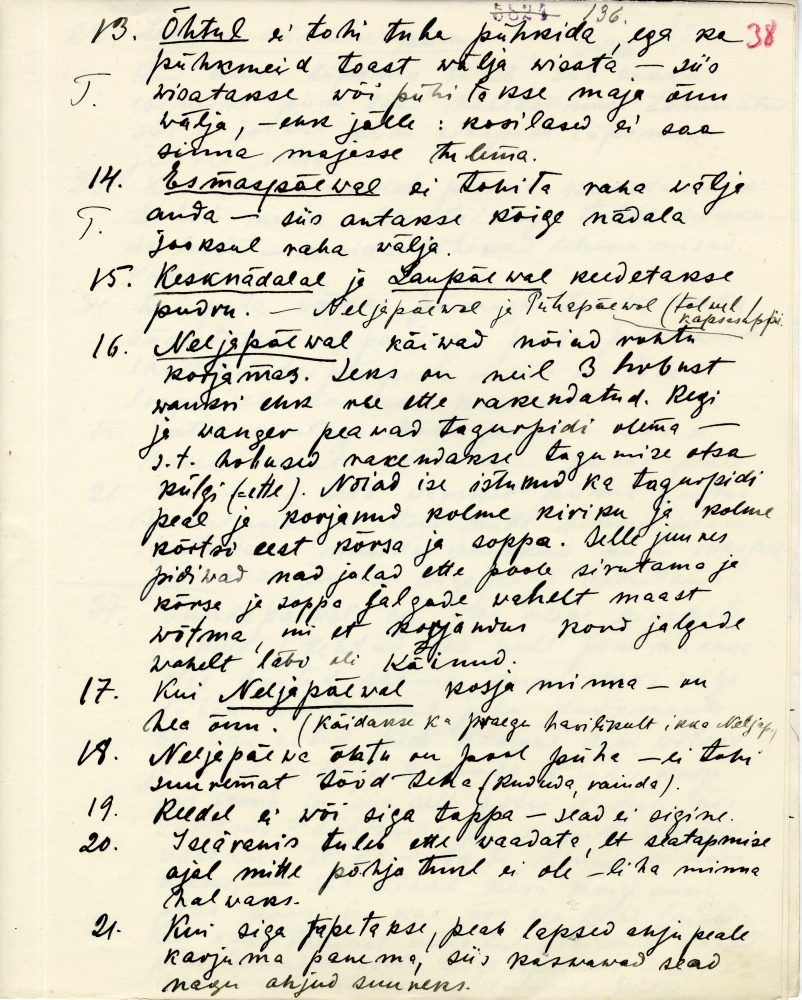 136.
38
13. Õhtul ei tohi tuba pühkida, ega ka
pühkmeid toast wälja wisata – siis
T. wisatakse wõi pühitakse maja õnn
wälja, – ehk jälle: kosilased ei saa
sinna majasse tulema.
14. Esmaspäewal ei tohita raha wälja
T. anda – siis antakse kõige nädala
jooksul raha wälja.
15. Kesknädalal ja Laupäewal keedetakse
pudru. – Neljapäewal ja Pühapäewal (talwel kapsasuppi.
16. Neljapäewal käiwad nõiad rohtu
korjamas. Seks on neil 3 hobust
wankri ehk ree ette rakendatud. Regi
ja wanger peawad tagurpidi olema –
s.t. hobused rakendakse tagumise otsa
külgi (=ette). Nõiad ise istunud ka tagurpidi
peal ja korjanud kolme kiriku ja kolme
kõrtsi eest kõrsa ja soppa. Selle juures
pidiwad nad jalad ette poole sirutama ja
kõrse ja soppa jalgade wahelt maast
wõtma, nii et korjandus kord jalgade
wahelt läbi oli käinud.
17. Kui Neljapäewal kosja minna – on
hea õnn. (Käidakse ka praegu harilikult ikka Neljap.
18. Neljapäewa õhtu on pool püha – ei tohi
suuremat tööd teha (kududa, rainda).
19. Reedel ei wõi siga tappa – sead ei sigine.
20. Iseäranis tuleb ette waadata, et seatapmise
ajal mitte põhja tuul ei ole – liha minna
halwaks.
21. Kui siga tapetakse, peab lapsed ahju peale
karjuma panema, siis kaswawad sead
nagu ahjud suureks.